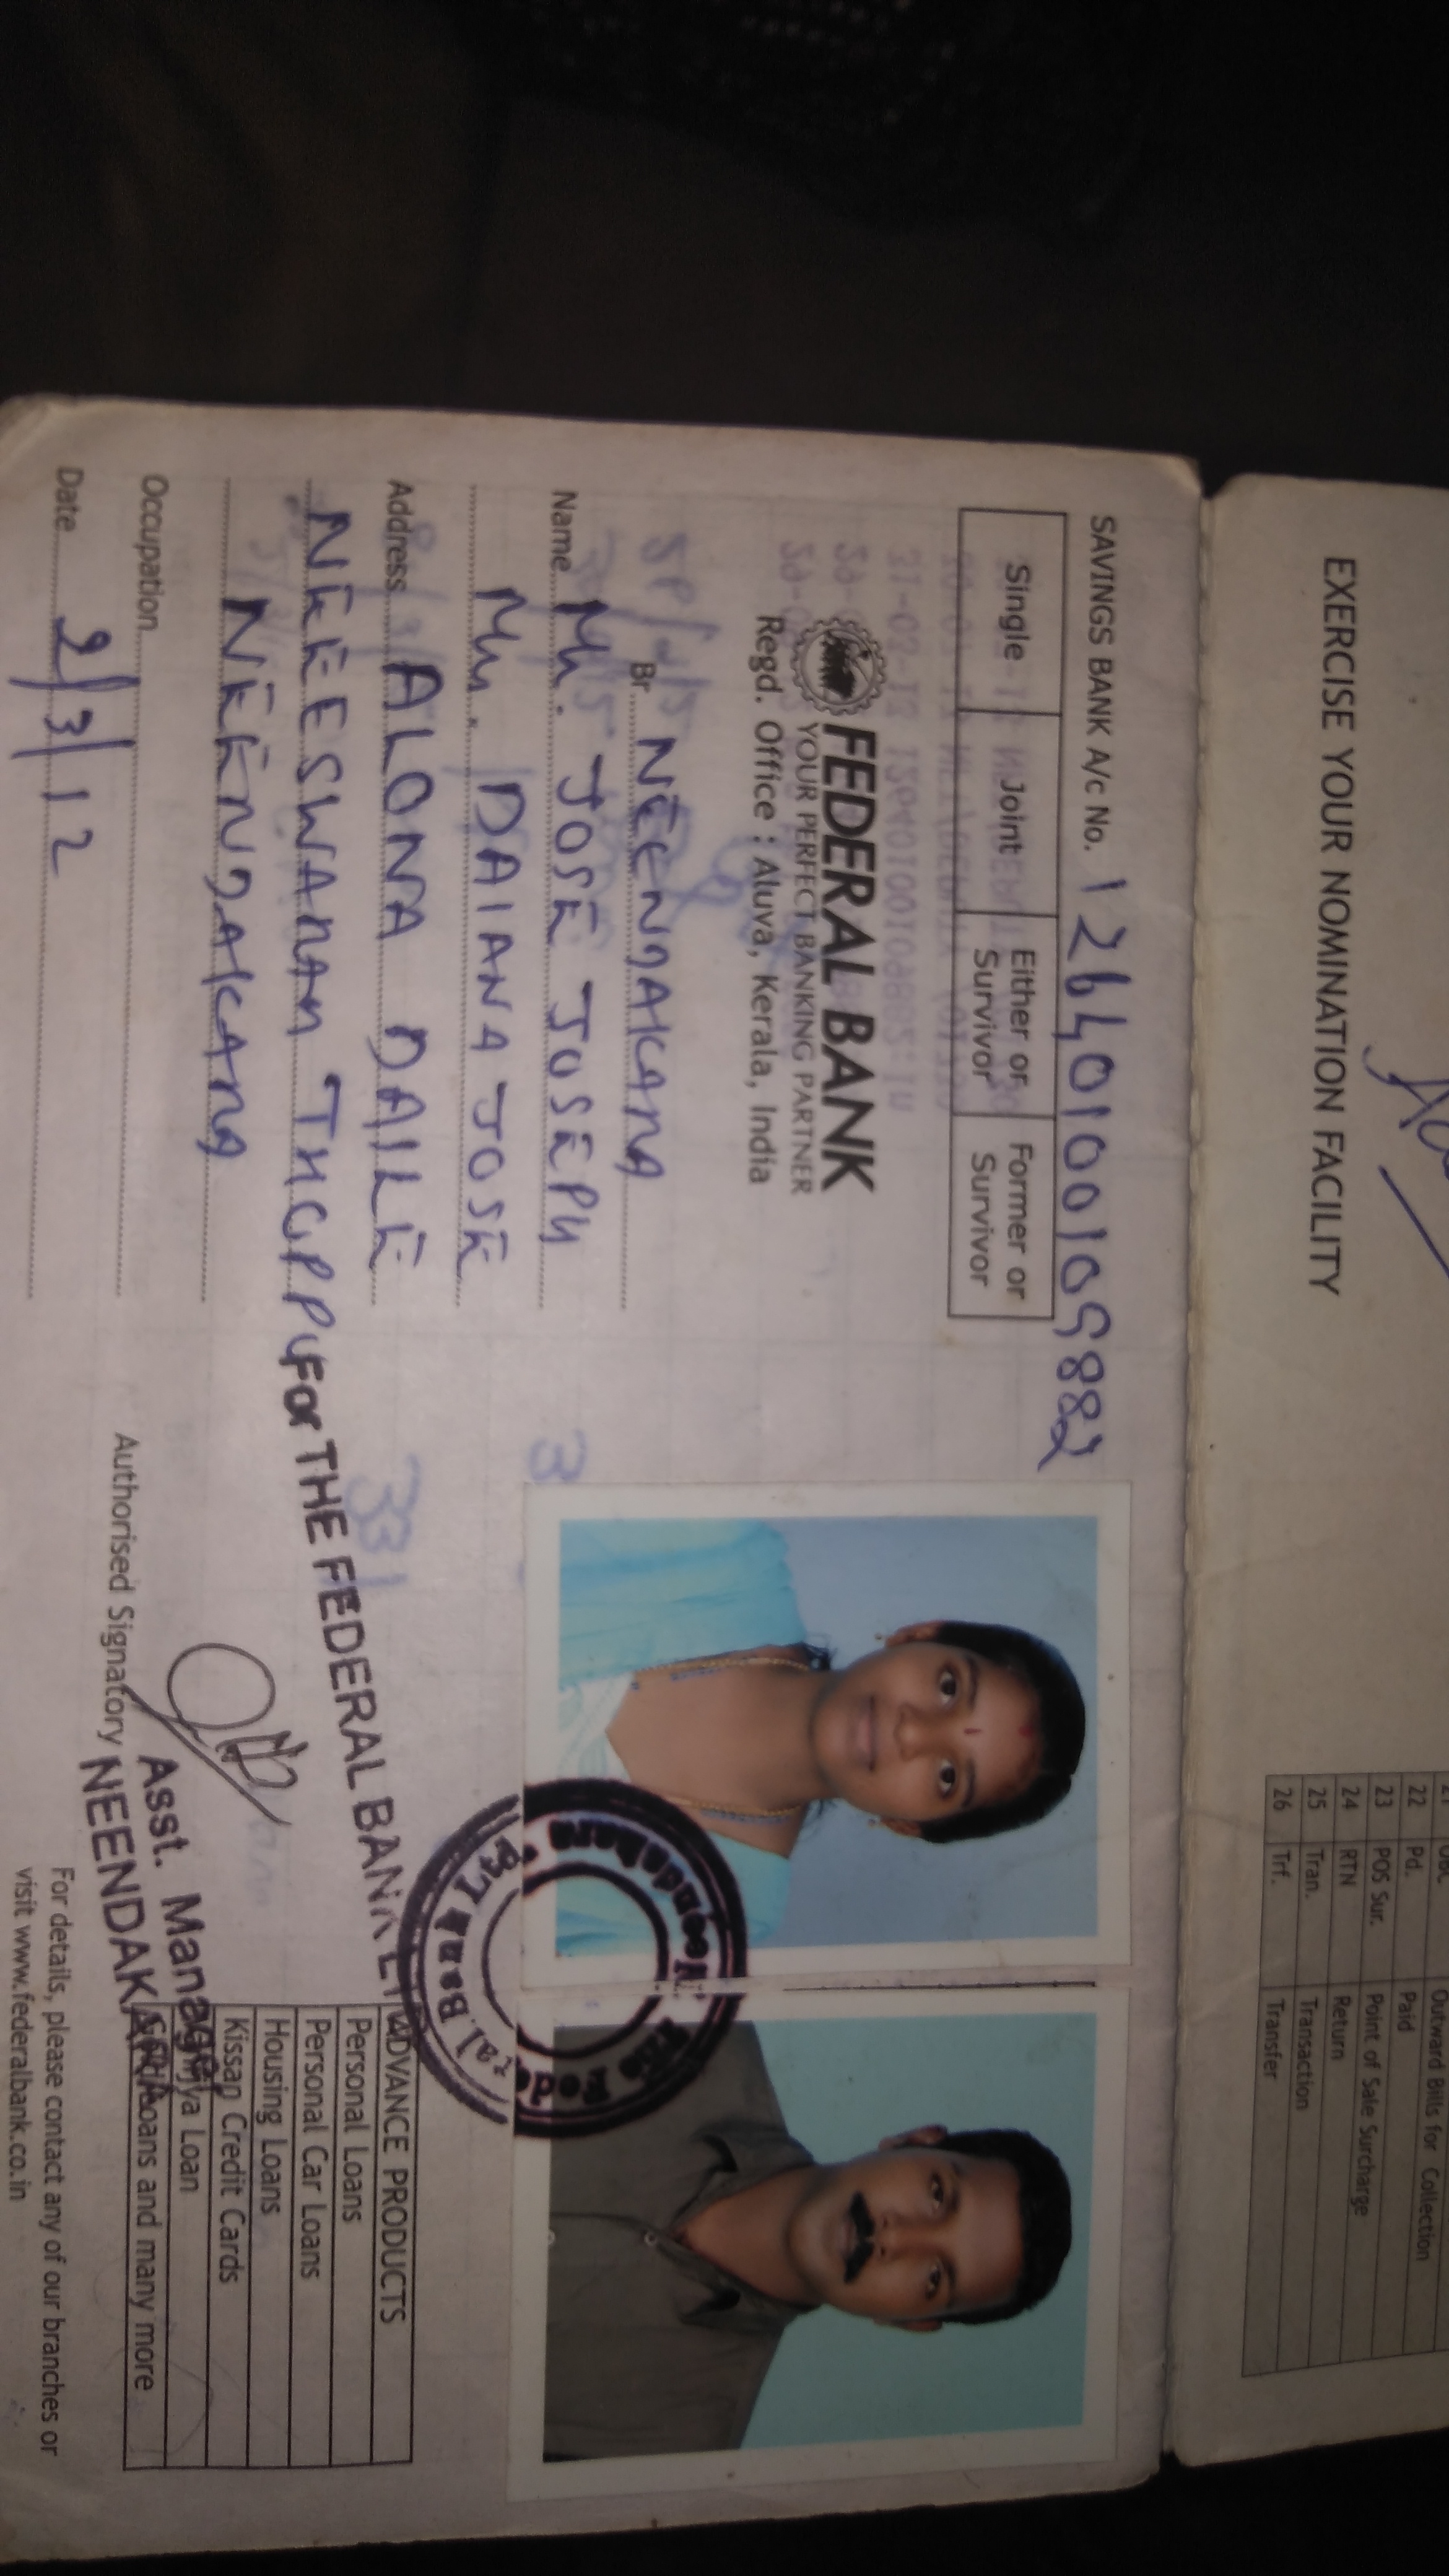 EXERCISE YOUR NOMINATION FACILITY
22 Pd. Paid
23 POS Sur. Point of Sale Surcharge
24 RTN Return
25 Tran. Transaction
26 Trf. Transfer
Outward Bills for Collection
SAVINGS BANK A/c No. 12640100105882
Single Joint Either or Survivor Former or Survivor
FEDERAL BANK
YOUR PERFECT BANKING PARTNER
Regd. Office : Aluva, Kerala, India
Br. NEENDAKARA
Name Mr. JOSE JOSEPH
Mrs. DAIANA JOSE
Address ALONA DAILE
NEEESWARAM THOPPU
NEENDAKARA
Occupation
Date 2/3/12
For THE FEDERAL BANK LTD
Authorised Signatory
Asst. Manager
NEENDAKARA
ADVANCE PRODUCTS
Personal Loans
Personal Car Loans
Housing Loans
Kissan Credit Cards
Loan
Loans and many more
For details, please contact any of our branches or
visit www.federalbank.co.in